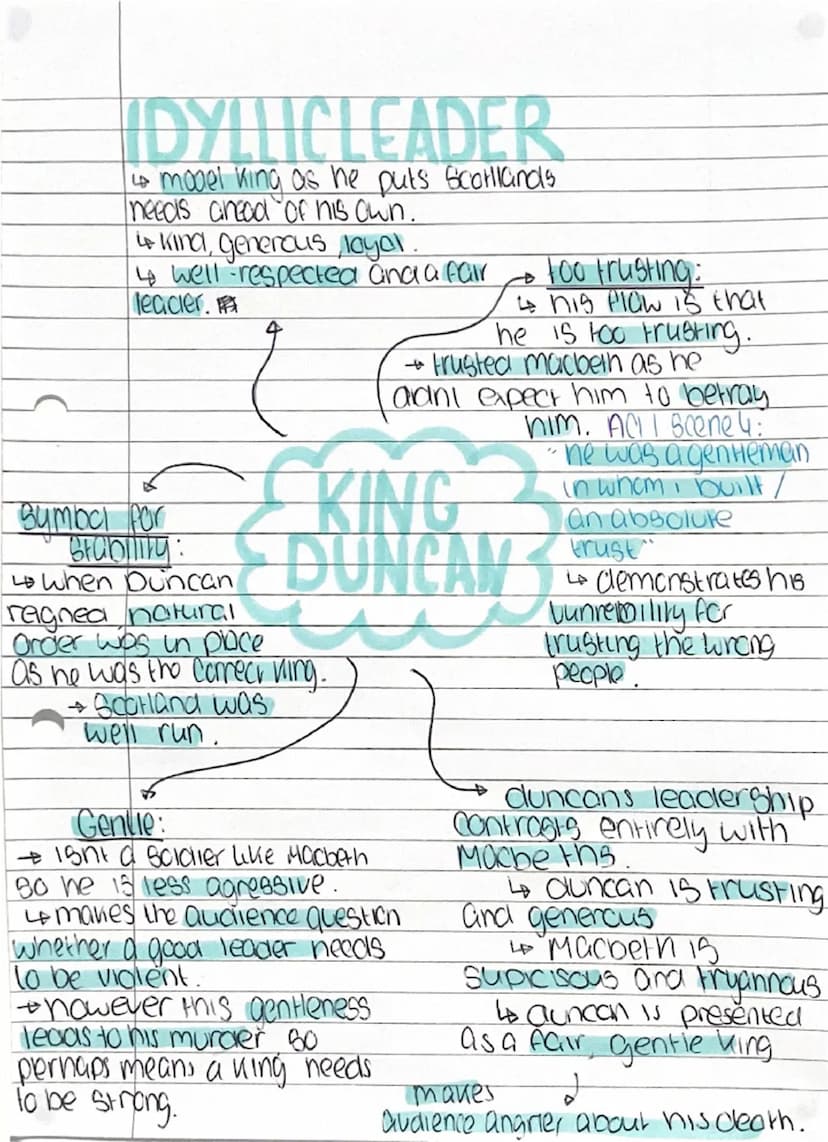 IDYLLIC LEADER
↳ model king as he puts Scotllands
needs ahead of his own.
↳ kind, generous, loyal.
↳ well-respected and a fair
leader.
too trusting:
↳ his flaw is that
he is too trusting.
→ trusted macbeth as he
didnt expect him to betray
him. Act 1 Scene 4:
"he was a gentleman
in whom i built /
an absolute
trust"
↳ demonstrates his
vunrebility for
trusting the wrong
people.
KING
DUNCAN
Symbol for
stability:
↳ when Duncan
reigned, natural
order was in place
as he was the correct king.
→ Scotland was
well run.
Gentle:
→ isnt a soldier like Macbeth
so he is less agressive.
↳ makes the audience question
whether a good leader needs
to be violent.
→ however this gentleness
leads to his murder so
perhaps means a king needs
to be strong.
duncans leadership
contrasts entirely with
Macbeths.
↳ duncan is trusting
and generous
↳ Macbeth is
supicisous and tryannous
↳ duncan is presented
as a fair, gentle king
makes
audience angrier about his death.